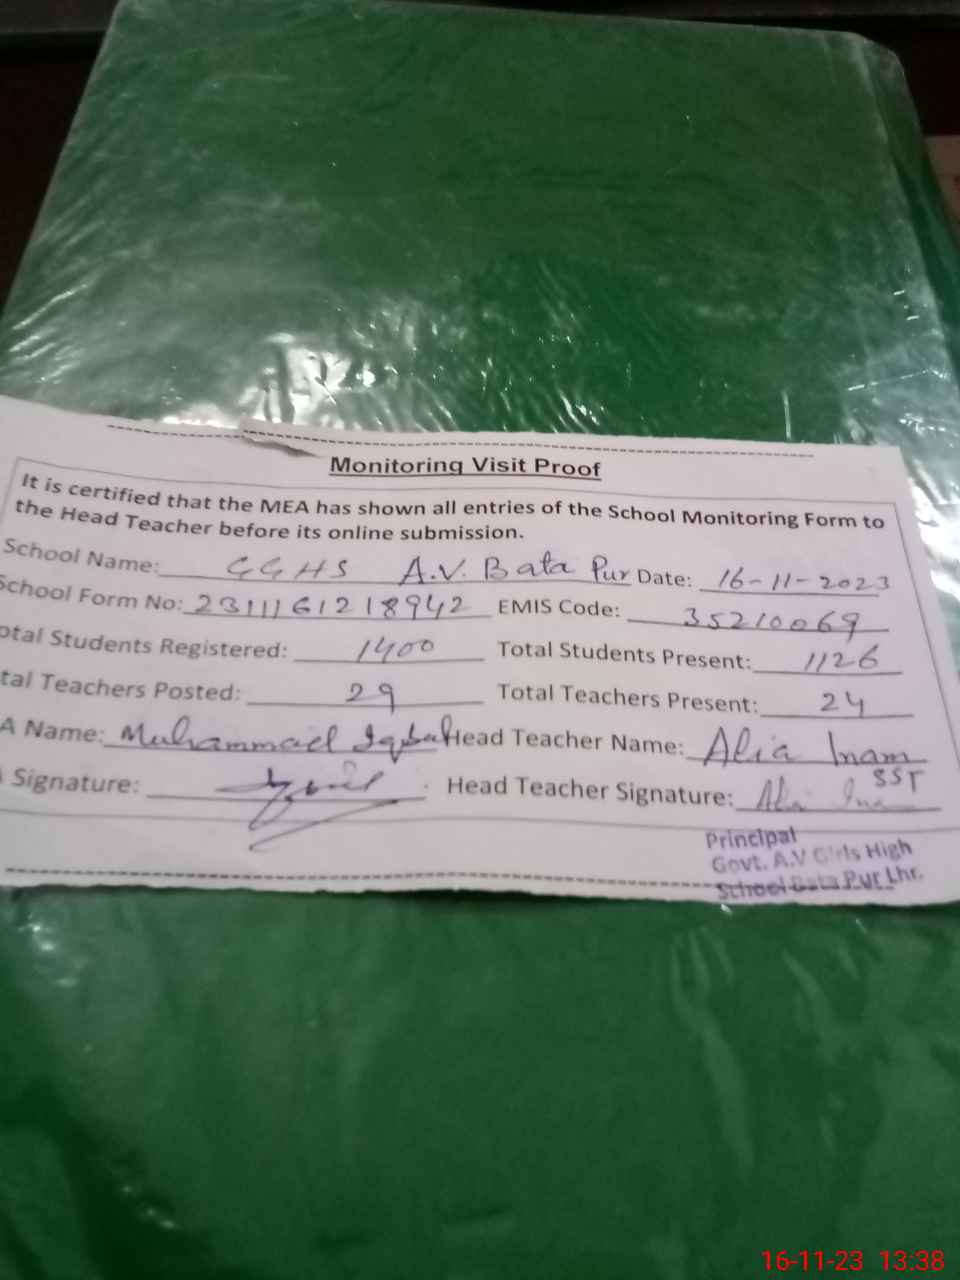 Monitoring Visit Proof
It is certified that the MEA has shown all entries of the School Monitoring Form to
the Head Teacher before its online submission.
School Name: GGHS A.V. Bata Pur Date: 16-11-2023
School Form No: 2311161218942 EMIS Code: 35210069
otal Students Registered: 1400 Total Students Present: 1126
tal Teachers Posted: 29 Total Teachers Present: 24
A Name: Muhammad Iqbal Head Teacher Name: Alia Inam
SST
Signature: Head Teacher Signature:
Principal
Govt. A.V Girls High
School Bata Pur Lhr.
16-11-23 13:38